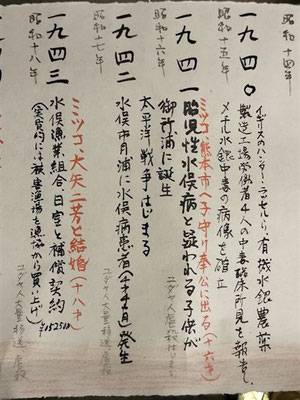 昭和十四年
一九四〇
昭和十五年
イギリスのハンター・ラッセルら、有機水銀農薬
製造工場労働者4人の中毒臨床所見を報告、
メチル水銀中毒の病像を確立
一九四一
昭和十六年
ミツコ、熊本市へ子守り奉公に出る(十六才)
胎児性水俣病と疑われる子供が
御所浦に誕生
ユダヤ人虐殺はじまる
太平洋戦争はじまる
一九四二
昭和十七年
水俣市月浦に水俣病患者(4才4ヶ月)発生
ユダヤ人大量移送 虐殺
一九四三
昭和十八年
ミツコ、大矢二芳と結婚(十八才)
水俣漁業組合、日窒と補償契約
¥152510
(実質的には被害漁場を漁協から買い上げ)
ユダヤ人大量移送 虐殺